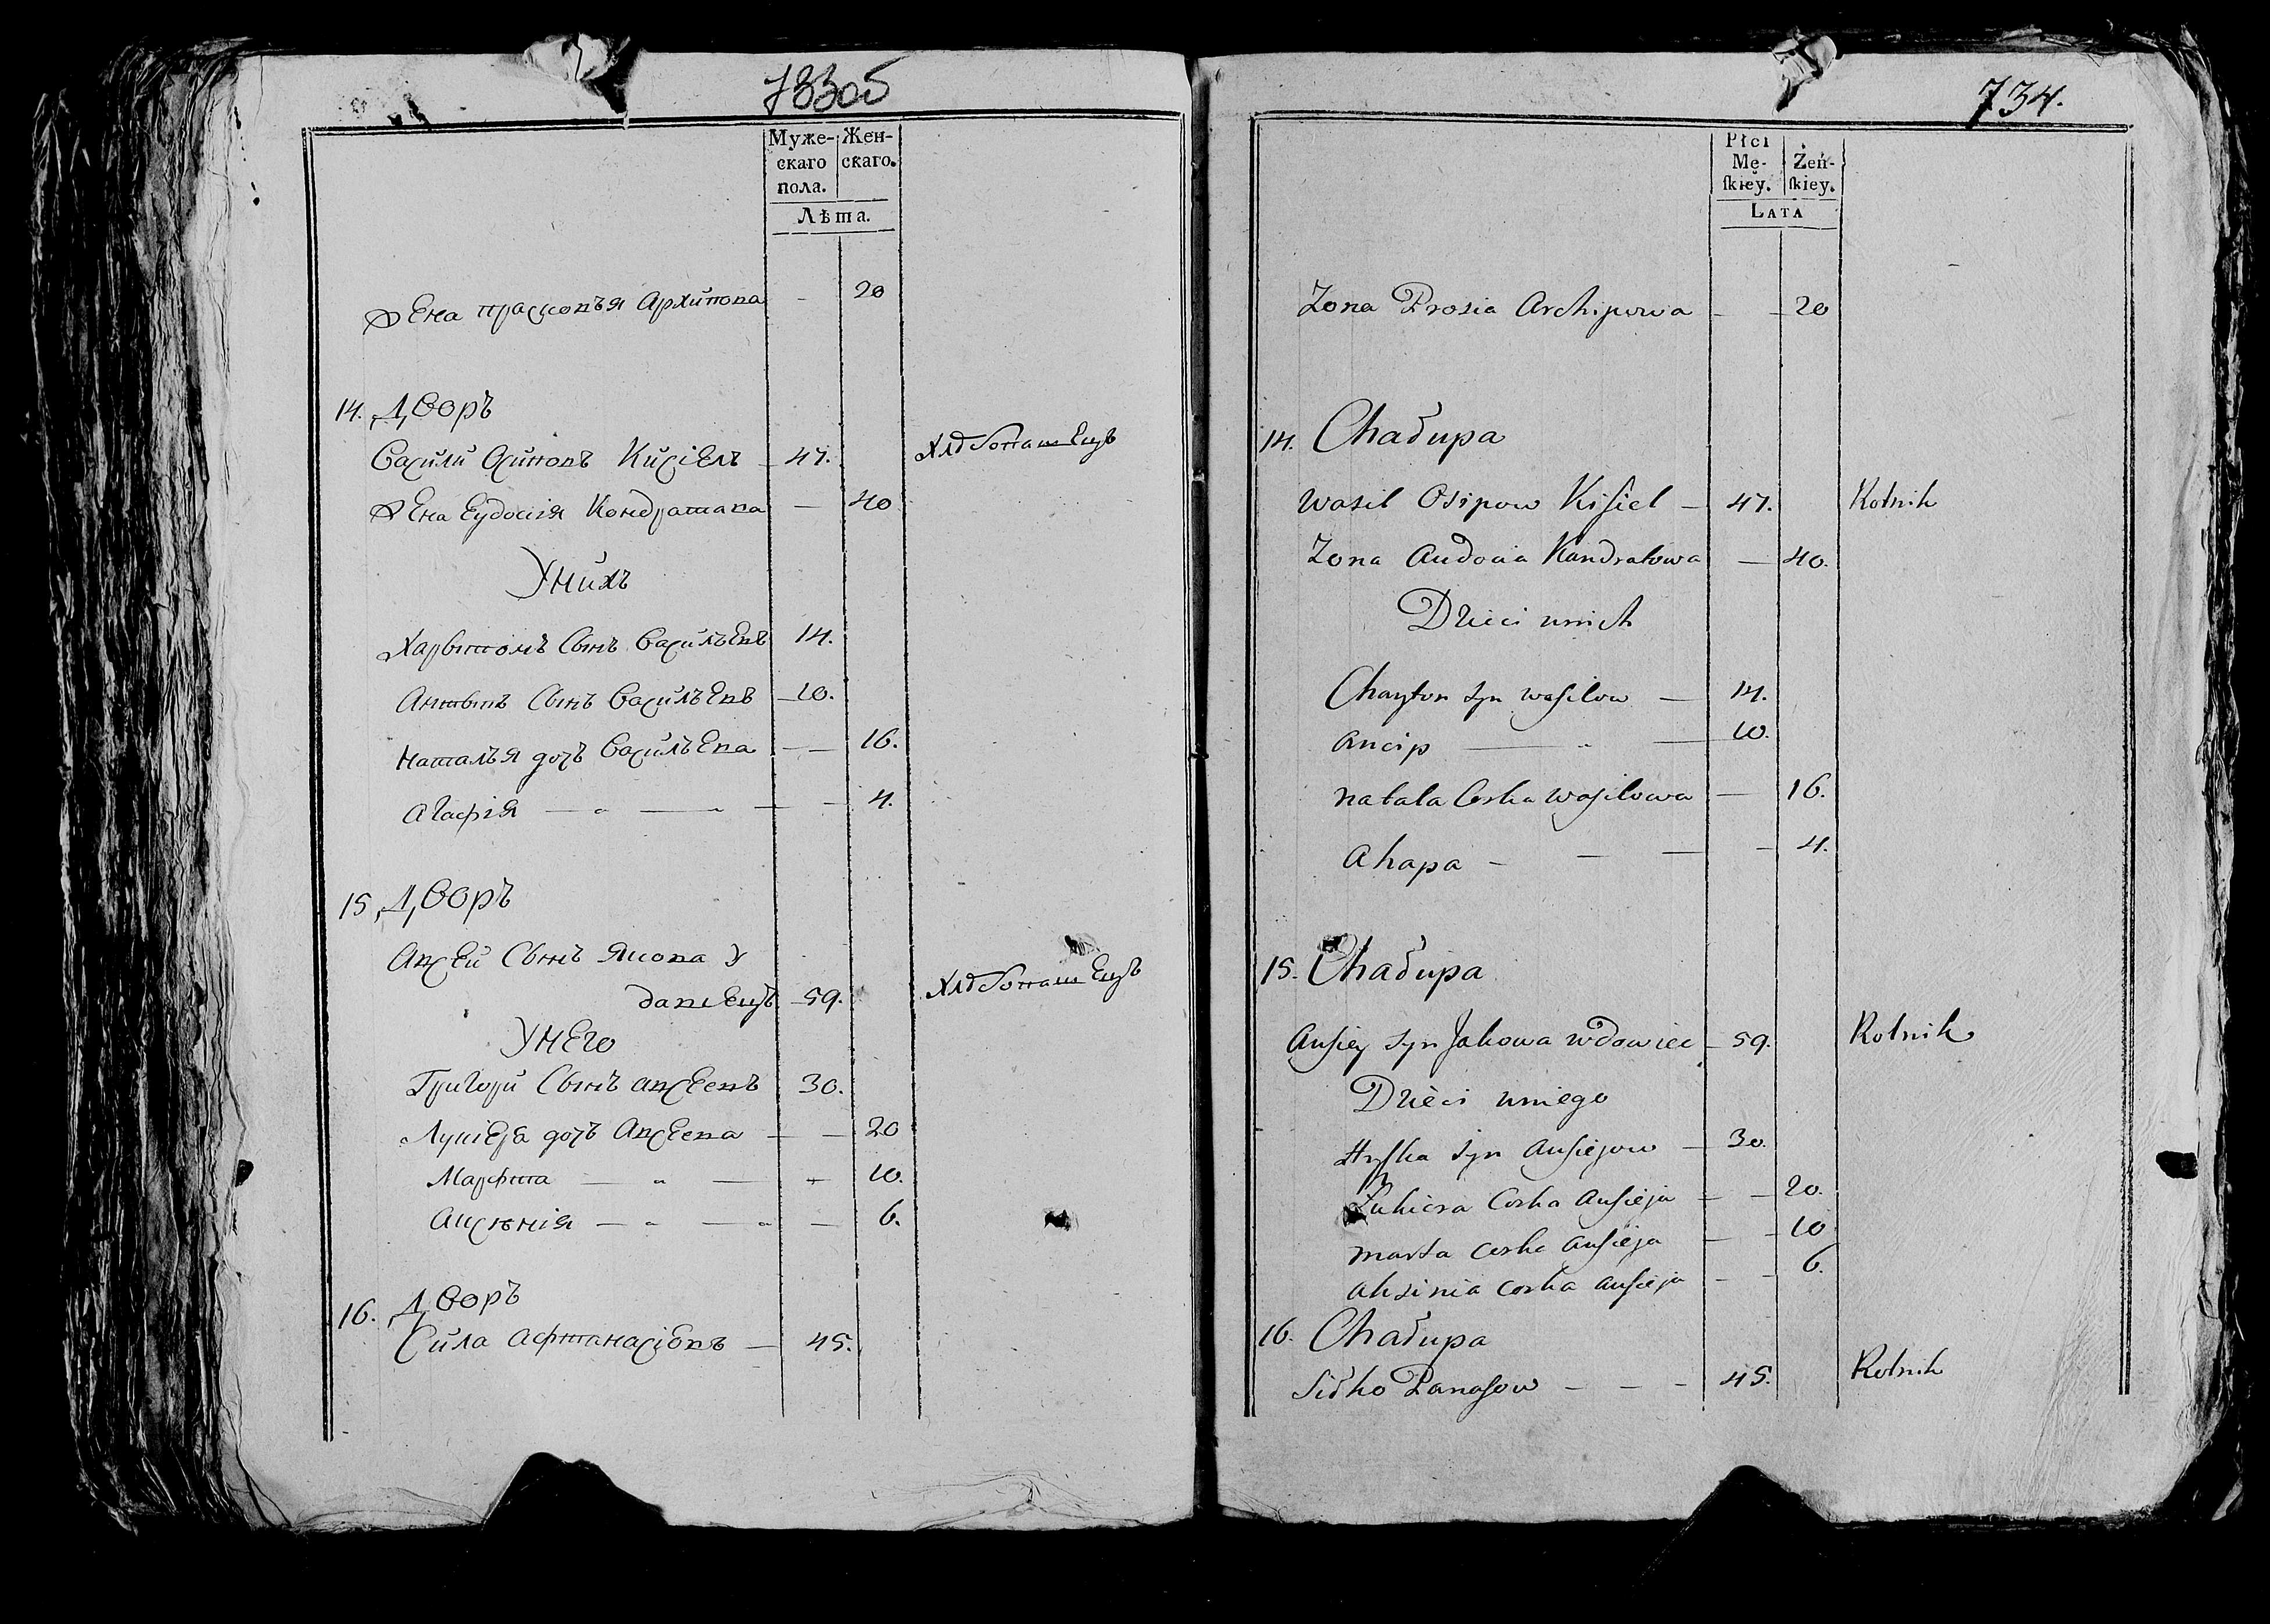 733об
Муже-
скаго
пола.
Жен-
скаго.
Лѣта.
Жена прасковъя Архипова - 20
14. Дворъ
Василий Осиповъ Кисiель - 47. Хлебопашецъ
Жена Еудокия Кондратава — 40
У нихъ
Харытонъ Сынъ Васильевъ 14.
Антыпъ Сынъ Васильевъ - 10.
Наталья дочь Васильева — — 16.
Агафiя — " — " — - 4.
15. Дворъ
Авсей Сынъ Якова У
давiецъ - 59. Хлебопашецъ
У него
Григорий Сынъ авсеевъ 30.
Лукiеря дочь Авсеева — — 20
Марфта — " — - 10.
Аксенiя — " — " — 6.
16. Дворъ
Сила Афтанасiевъ — 45.
734.
Płci
Mę-
skiey.
Żeń-
skiey.
LATA
Zona Prosia Archipowa - - 20
14. Chałupa
Wasil Osipow Kisiel - 47. Rolnik
Zona Audocia Kandratowa — 40.
Dzieci unich
Charyton syn wasilow — 14.
Ancip — " — 10.
natala Corka wasilowa — 16.
Ahapa - — — - 4.
15. Chałupa
Ausiey syn Jakowa wdowiec - 59. Rolnik
Dzieci uniego
Hryska syn Ausiejow - 30.
Łukiera Corka Ausieja - - 20.
marta corka Ausieja - - 10
Aksinia corka Ausieja - - 6.
16. Chałupa
Sidko Panasow - - - 45. Rolnik